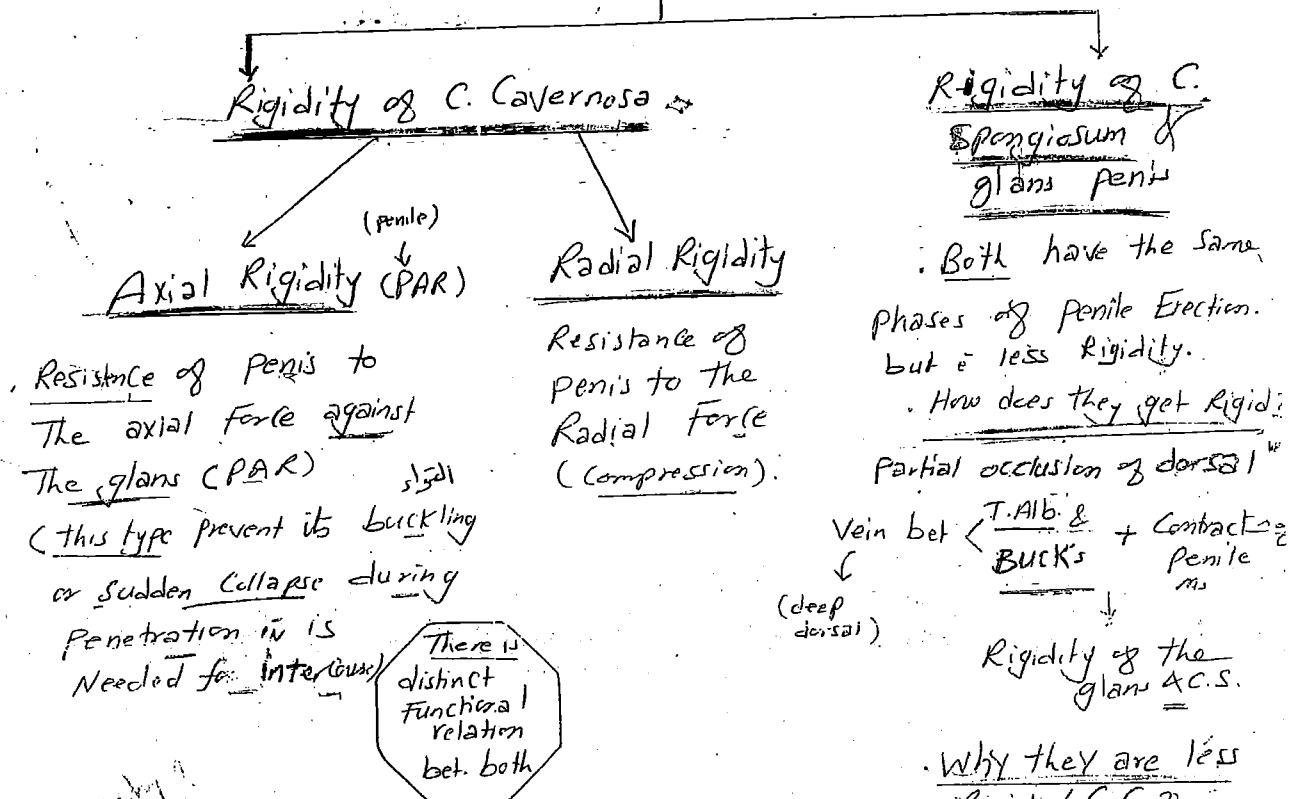 Rigidity of C. Cavernosa
(penile)
Axial Rigidity (PAR)
. Resistnce of Penis to
The axial Force against
The glans (PAR)
التواء
(this type prevent its buckling
or Sudden Collapse during
Penetration is
Needed for Intercourse)
There is
distinct
Functional
relation
bet. both
Radial Rigidity
Resistance of
penis to the
Radial Force
(Compression).
Rigidity of C.
Spongiosum &
glans penis
. Both have the same
phases of penile Erection.
but ē less Rigidity.
. How does they get Rigid?
Partial occlusion of dorsal
Vein bet < T.Alb. & BUCK's + Contract
penile
ms
(deep
dorsal)
Rigidity of the
glans & C.S.
. Why they are less